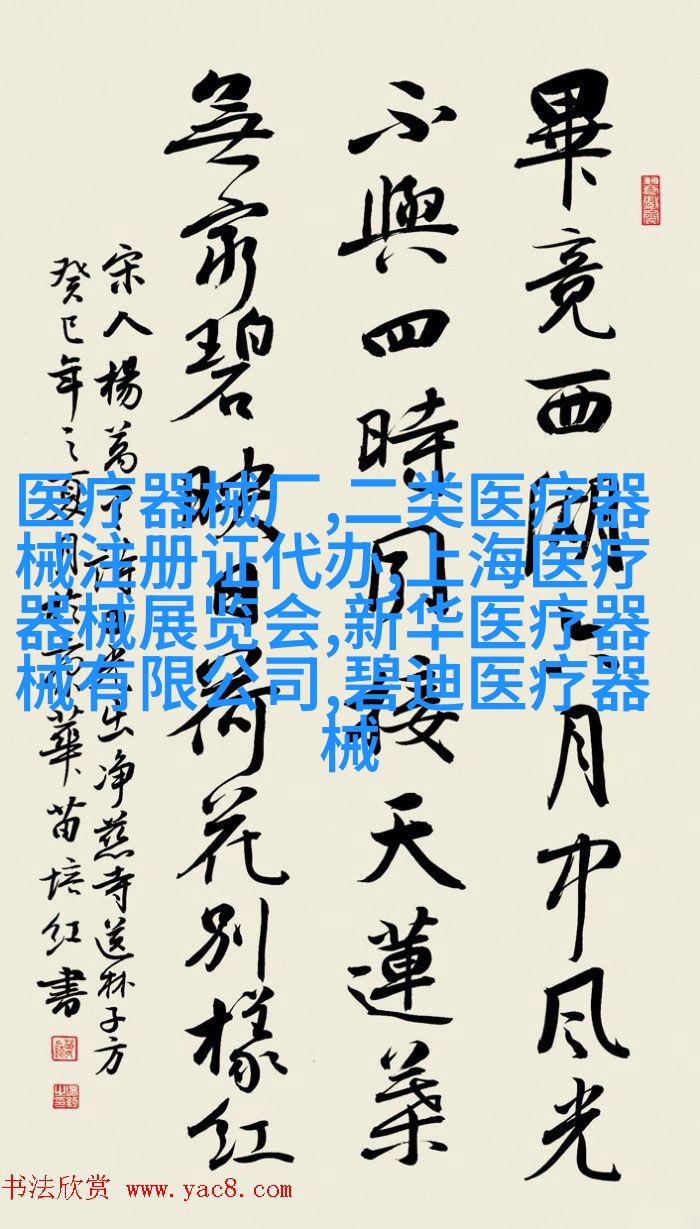 畢竟西湖六月中风光
不與四時同接天蓮葉
無窮碧映日荷花別樣紅
宋人楊萬里詩出净慈寺送林子方
癸巳年之夏月於華苗培红書
医疗器械厂,二类医疗器
械注册证代办,上海医疗
器械展览会,新华医疗器
械有限公司,碧迪医疗器
械
书法欣赏 www.yac8.com